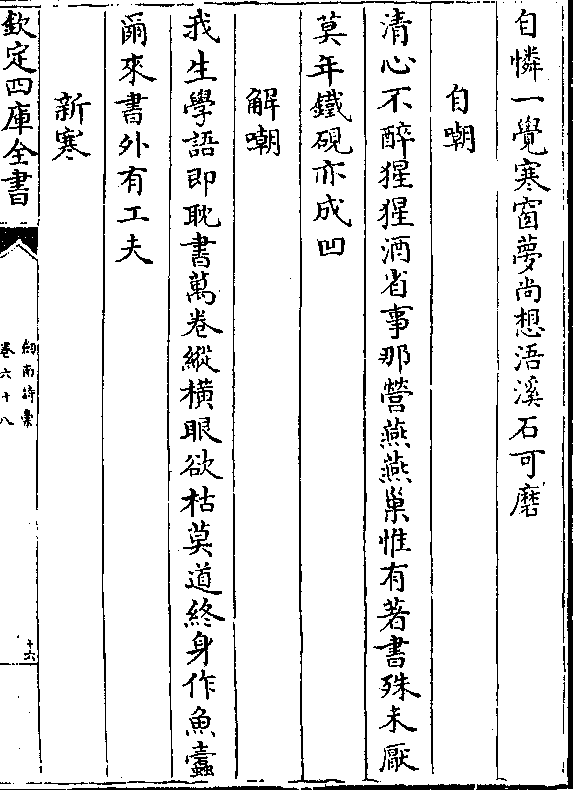 自憐一覺寒窗夢尚想浯溪石可磨
自嘲
清心不醉猩猩酒省事那營燕燕巢惟有著書殊未厭
莫年鐵硯亦成凹
解嘲
我生學語即耽書萬卷縱橫眼欲枯莫道終身作魚蠹
爾來書外有工夫
新寒
欽定四庫全書
劍南詩槀
卷六十八
十六